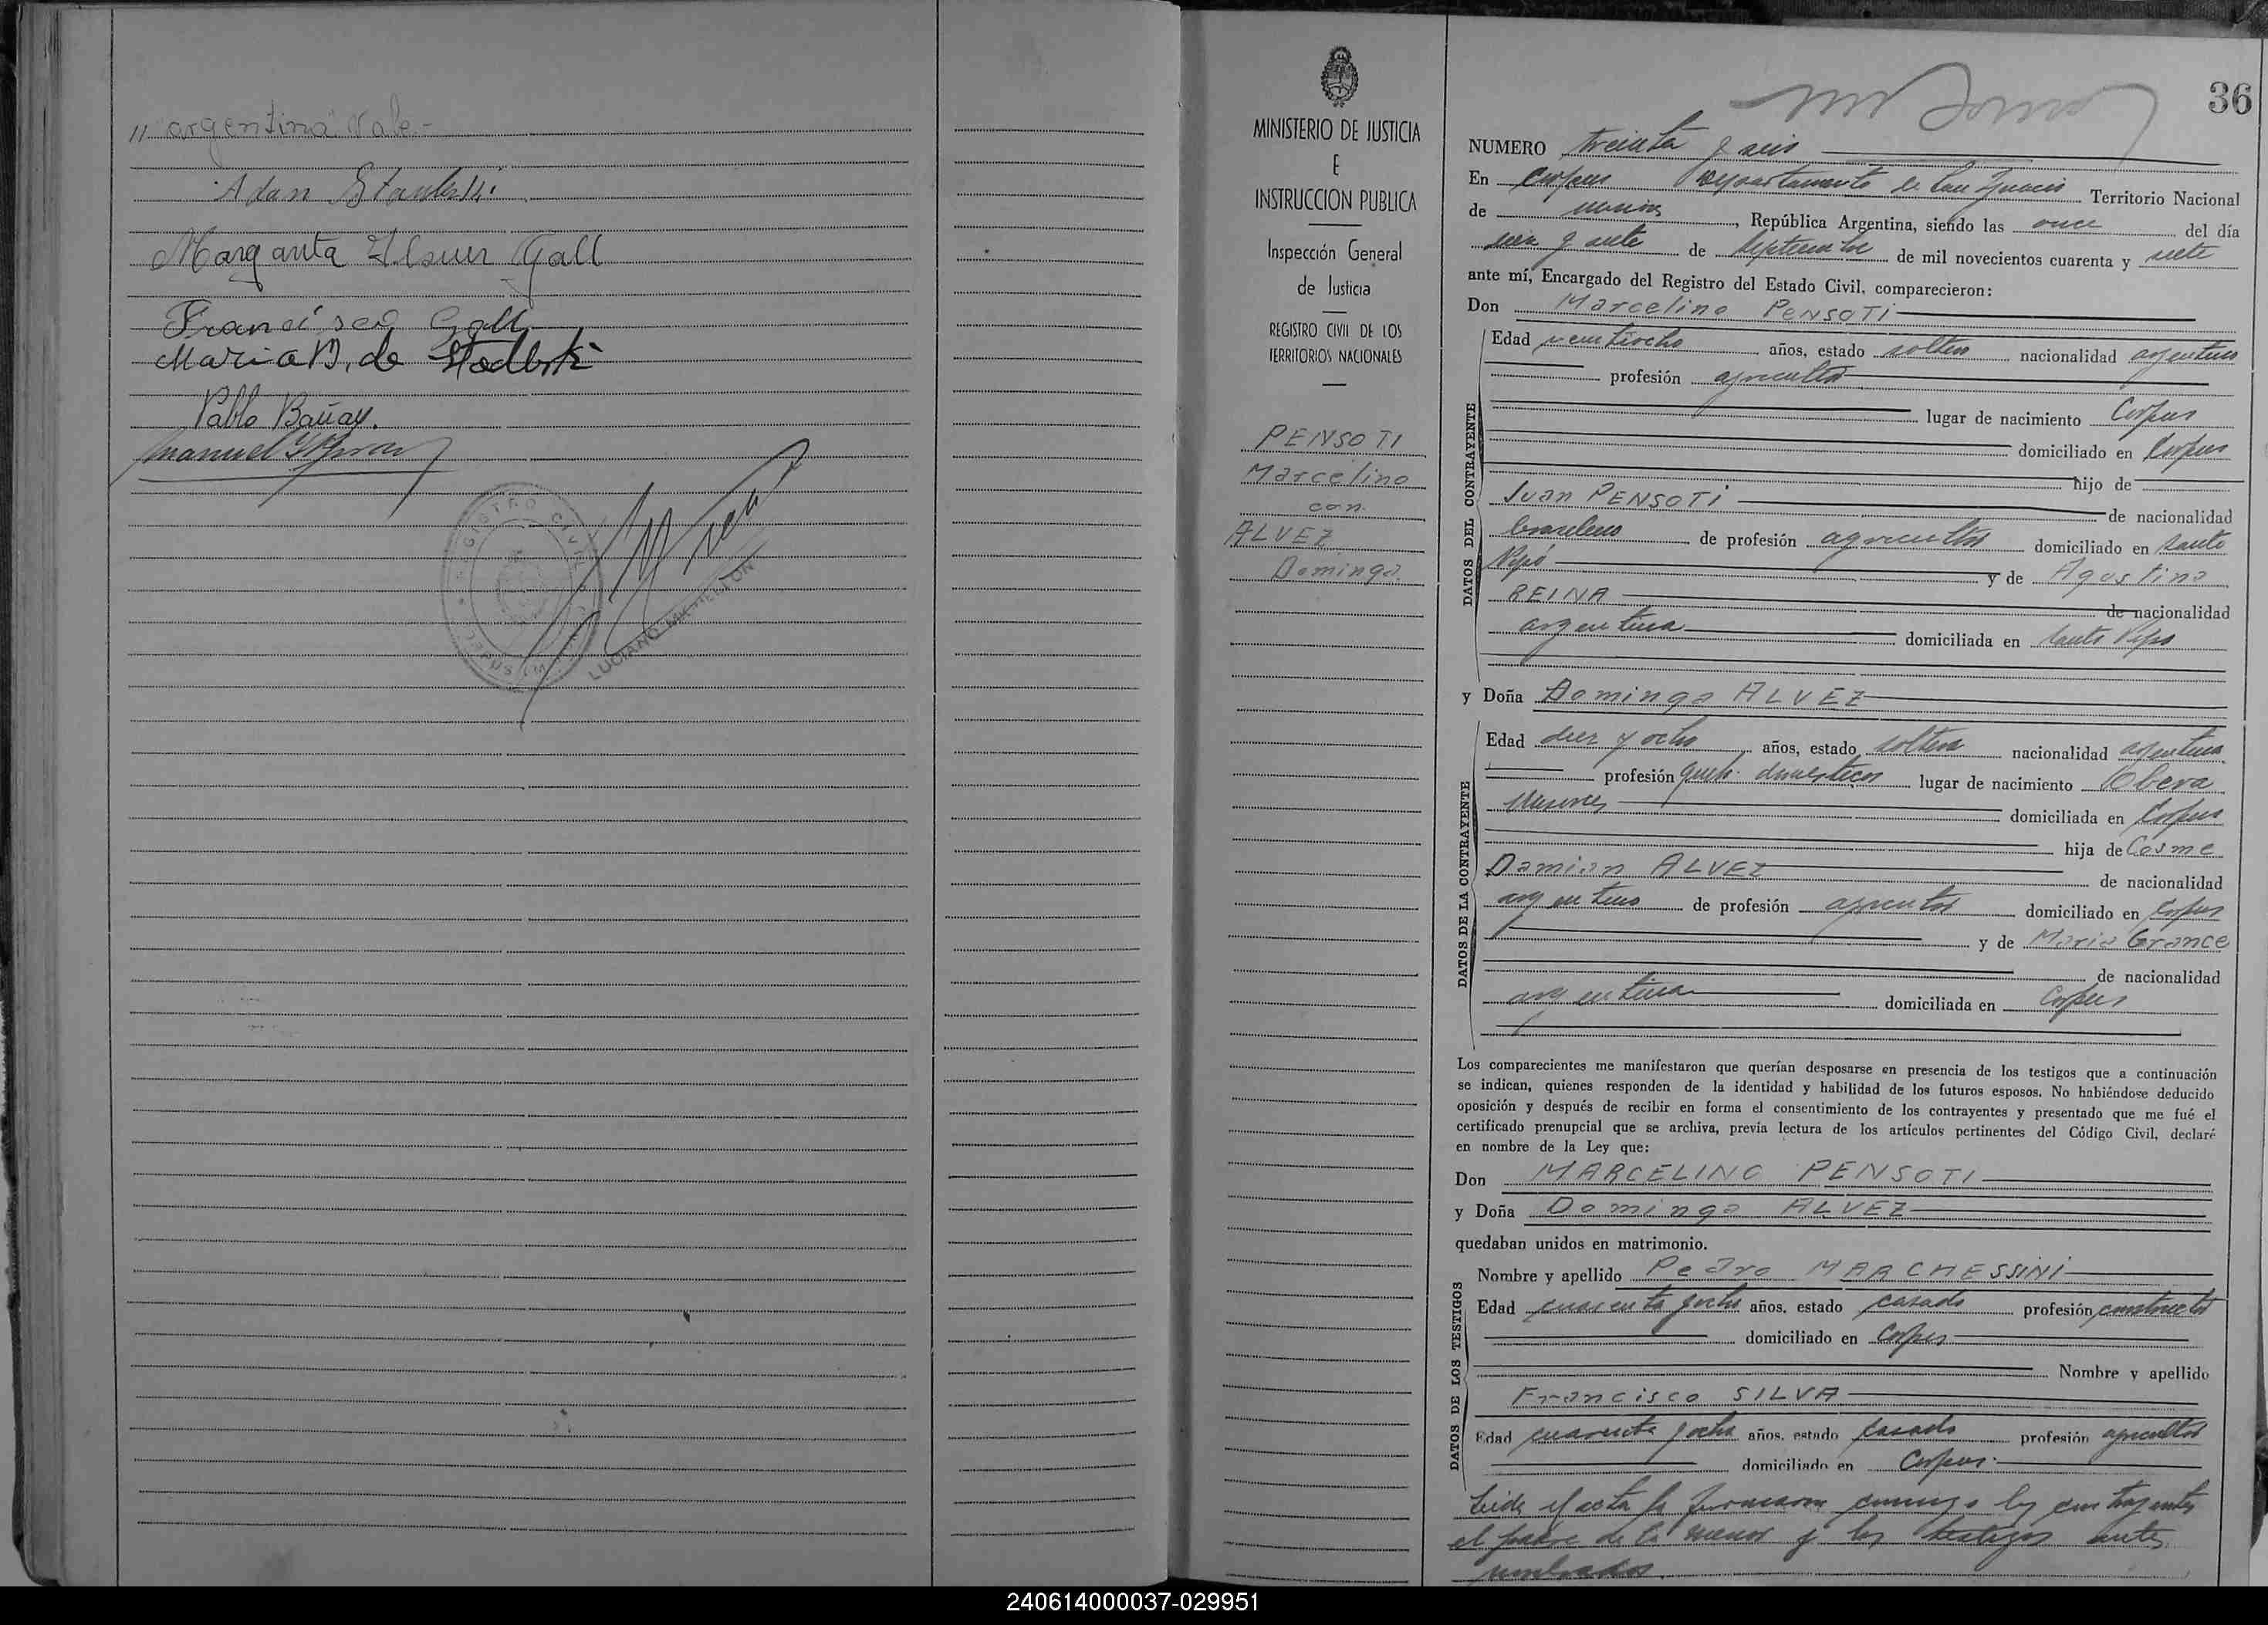 "argentina" Vale.-
Adan
Margarita Gall
Francisco Gall
Maria B. de
Pablo Bauay.
Manuel
REGISTRO CIVIL
CORPUS (M
LUCIANO
36
MINISTERIO DE JUSTICIA
E
INSTRUCCION PUBLICA
Inspección General
de Justicia
REGISTRO CIVIL DE LOS
TERRITORIOS NACIONALES
PENSOTI
Marcelino
con
ALVEZ
Dominga
NUMERO treinta y seis
En Corpus Departamento de San Ignacio Territorio Nacional
de Misiones, República Argentina, siendo las once del día
diez y siete de Septiembre de mil novecientos cuarenta y siete
ante mí, Encargado del Registro del Estado Civil, comparecieron:
Don Marcelino PENSOTI
DATOS DEL CONTRAYENTE
Edad veintiocho años, estado soltero nacionalidad argentino
profesión agricultor
lugar de nacimiento Corpus
domiciliado en Corpus
hijo de
Juan PENSOTI de nacionalidad
brasilero de profesión agricultor domiciliado en Santo
Pipó y de Agustina
REINA de nacionalidad
argentina domiciliada en Santo Pipo
y Doña Dominga ALVEZ
DATOS DE LA CONTRAYENTE
Edad diez y ocho años, estado soltera nacionalidad argentina
profesión queh. domesticos lugar de nacimiento Obera
Misiones domiciliada en Corpus
hija de Cosme
Damian ALVEZ de nacionalidad
argentino de profesión agricultor domiciliado en Corpus
y de Maria Grance
de nacionalidad
argentina domiciliada en Corpus
Los comparecientes me manifestaron que querían desposarse en presencia de los testigos que a continuación
se indican, quienes responden de la identidad y habilidad de los futuros esposos. No habiéndose deducido
oposición y después de recibir en forma el consentimiento de los contrayentes y presentado que me fué el
certificado prenupcial que se archiva, previa lectura de los artículos pertinentes del Código Civil, declaré
en nombre de la Ley que:
Don MARCELINO PENSOTI
y Doña Dominga ALVEZ
quedaban unidos en matrimonio.
DATOS DE LOS TESTIGOS
Nombre y apellido Pedro MARCHESSINI
Edad cuarenta y ocho años, estado casado profesión constructor
domiciliado en Corpus
Nombre y apellido
Francisco SILVA
Edad cuarenta y ocho años, estado casado profesión agricultor
domiciliado en Corpus.
Leida el acta la firmaron conmigo los contrayentes
el padre de la menor y los testigos antes
nombrados.
240614000037-029951